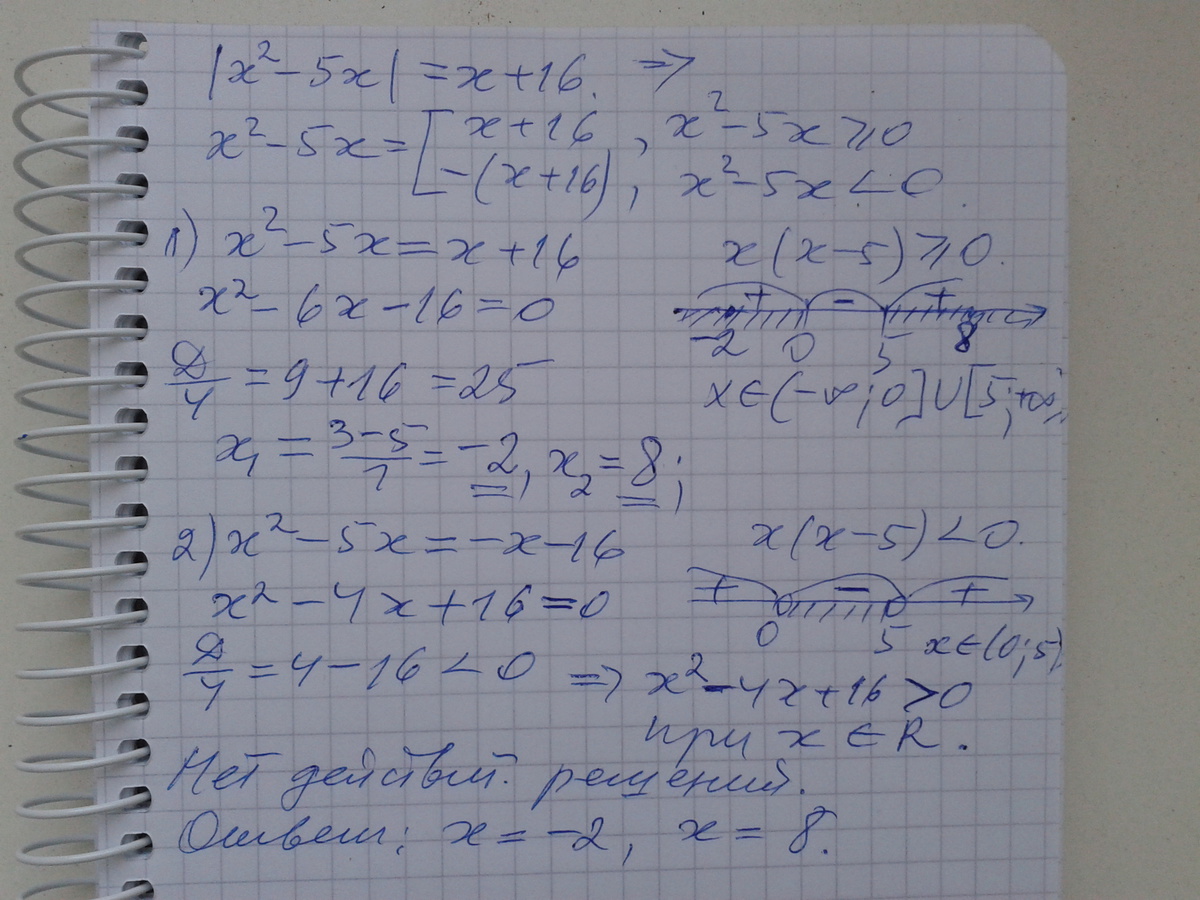 |x² - 5x| = x + 16. ⇒
x² - 5x = [ x + 16 , x² - 5x ⩾ 0
-(x + 16), x² - 5x < 0.
1) x² - 5x = x + 16 x(x - 5) ⩾ 0.
x² - 6x - 16 = 0 + - +
-2 0 5 8
D/4 = 9 + 16 = 25 x ∈ (-∞; 0] ∪ [5; +∞);
x₁ = (3 - 5)/1 = -2, x₂ = 8;
2) x² - 5x = -x - 16 x(x - 5) < 0.
x² - 4x + 16 = 0 + - +
0 5 x ∈ (0; 5)
D/4 = 4 - 16 < 0 ⇒ x² - 4x + 16 > 0
при x ∈ R.
Нет действит. решений.
Ответ: x = -2, x = 8.